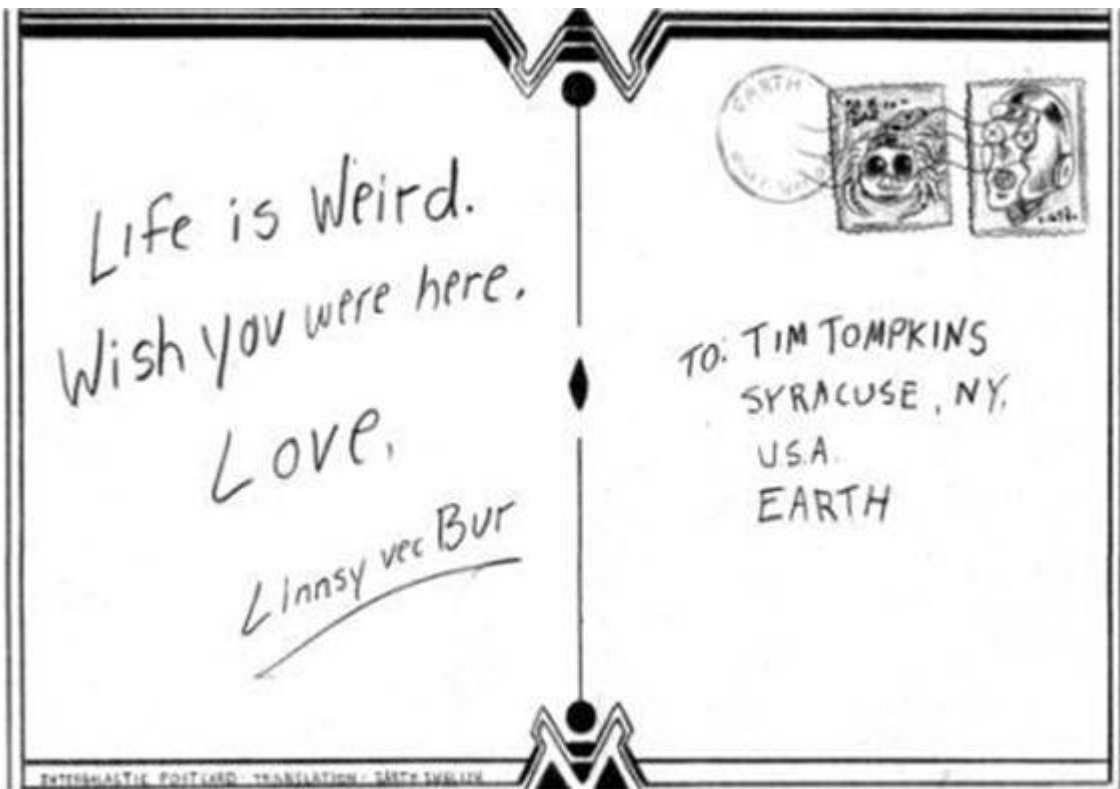 Life is Weird.
Wish you were here.
Love,
Linnsy vec Bur
EARTH
TO: TIM TOMPKINS
SYRACUSE, NY.
U.S.A.
EARTH
INTERGALACTIC POSTCARD · TRANSLATION · EARTH ENGLISH